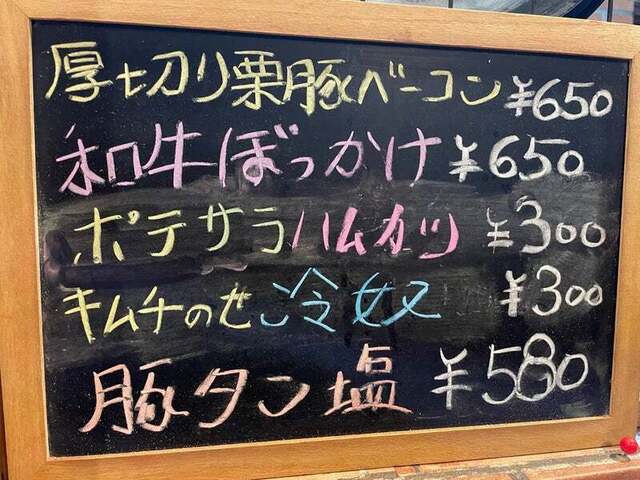 厚切り栗豚ベーコン ¥650
和牛ぼっかけ ¥650
ポテサラハムカツ ¥300
キムチのせ冷奴 ¥300
豚タン塩 ¥580